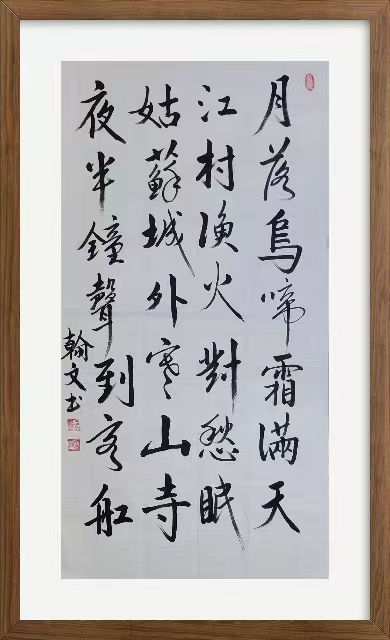 月落烏啼霜滿天
江村漁火對愁眠
姑蘇城外寒山寺
夜半鐘聲到客船
翰文书